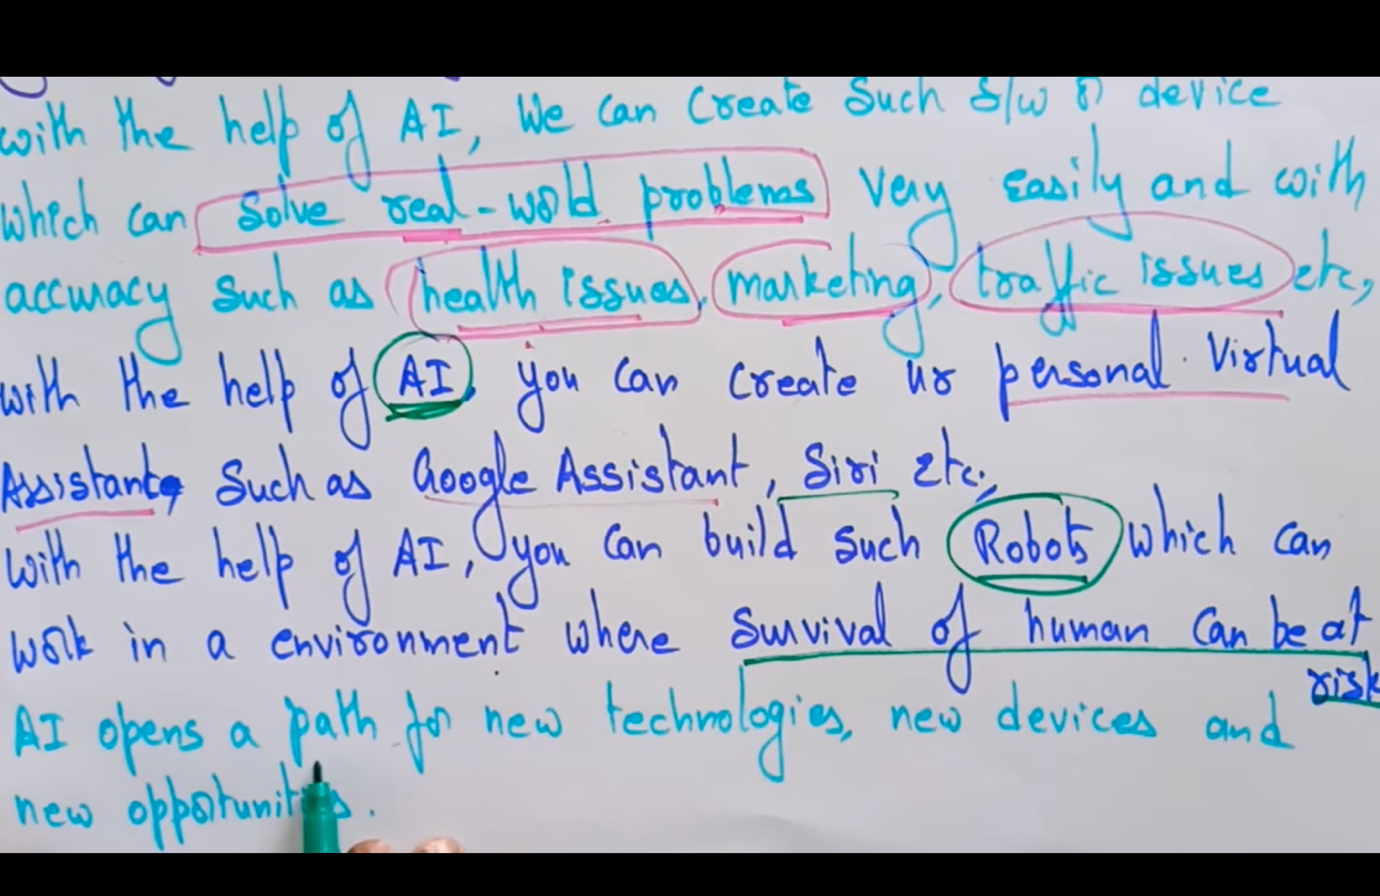 with the help of AI, We can Create Such S/w or device
which can solve real-world problems very easily and with
accuracy such as health issues, marketing, traffic issues etc,
with the help of AI, you can create ur personal Virtual
Assistant, Such as Google Assistant, Siri etc,
with the help of AI, you can build such Robots which can
work in a environment where survival of human can be at
risk
AI opens a path for new technologies, new devices and
new opportunities.